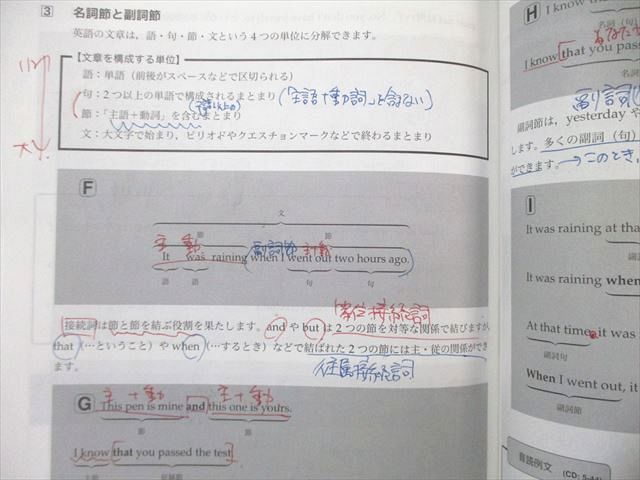 3 名詞節と副詞節
英語の文章は，語・句・節・文という4つの単位に分解できます。
【文章を構成する単位】
小
大
語：単語（前後がスペースなどで区切られる）
句：2つ以上の単語で構成されるまとまり（「主語＋動詞」を含まない）
節：「主語＋動詞」を含むまとまり
文：大文字で始まり，ピリオドやクエスチョンマークなどで終わるまとまり
F
文
節 節
主 動 副詞節 主 動
It was raining when I went out two hours ago.
語 語 句 句
等位接続詞
接続詞は節と節を結ぶ役割を果たします。and や but は2つの節を対等な関係で結びますが
that（…ということ）や when（…するとき）などで結ばれた2つの節には主・従の関係ができ
ます。
従属接続詞
G
主＋動 主＋動
This pen is mine and this one is yours.
節 節
I know that you passed the test
H
I know the
名詞（句）
I know that you pas
副詞節は，yesterday や
します。多くの副詞（句）
ができます。→このとき，
I
It was raining at tha
副詞
It was raining when
副詞
At that time, it was
副詞句
When I went out, it
副詞節
音読例文
(CD: 5-44)